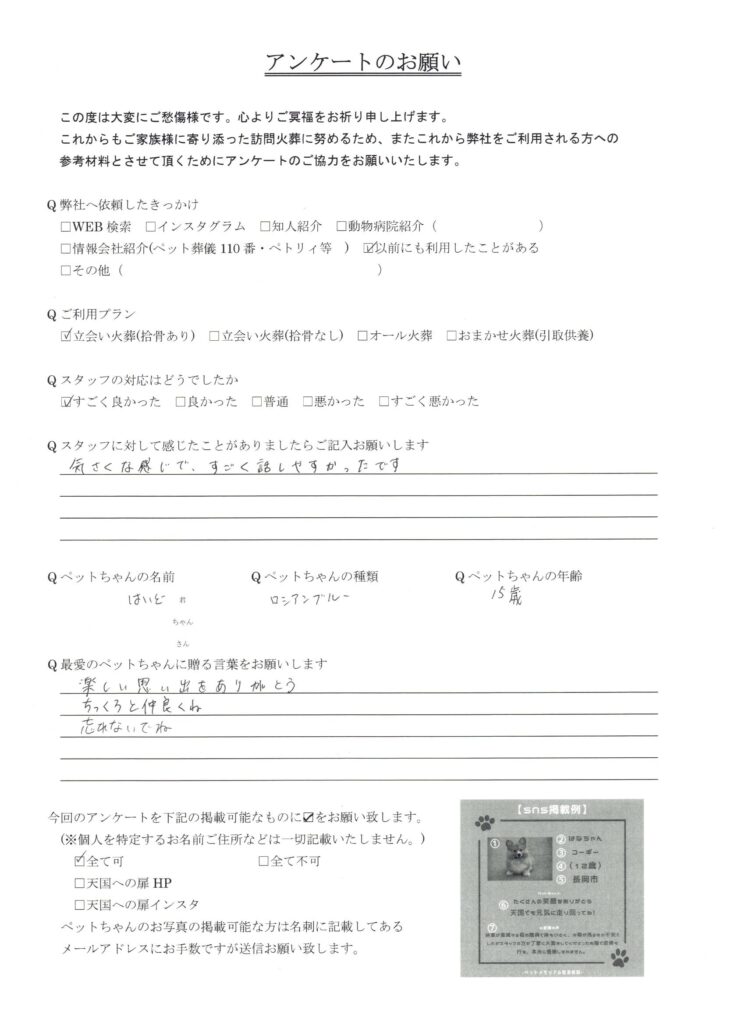 アンケートのお願い
この度は大変にご愁傷様です。心よりご冥福をお祈り申し上げます。
これからもご家族様に寄り添った訪問火葬に努めるため、またこれから弊社をご利用される方への
参考材料とさせて頂くためにアンケートのご協力をお願いいたします。
Q 弊社へ依頼したきっかけ
□WEB 検索 □インスタグラム □知人紹介 □動物病院紹介（ ）
□情報会社紹介(ペット葬儀 110 番・ペトリィ等 ) ☑以前にも利用したことがある
□その他（ ）
Q ご利用プラン
☑立会い火葬(拾骨あり) □立会い火葬(拾骨なし) □オール火葬 □おまかせ火葬(引取供養)
Q スタッフの対応はどうでしたか
☑すごく良かった □良かった □普通 □悪かった □すごく悪かった
Q スタッフに対して感じたことがありましたらご記入お願いします
気さくな感じで、すごく話しやすかったです
Q ペットちゃんの名前 Q ペットちゃんの種類 Q ペットちゃんの年齢
はいど 君 ロシアンブルー 15歳
ちゃん
さん
Q 最愛のペットちゃんに贈る言葉をお願いします
楽しい思い出をありがとう
ちっくろと仲良くね
忘れないでね
今回のアンケートを下記の掲載可能なものに☑をお願い致します。
(※個人を特定するお名前ご住所などは一切記載いたしません。)
☑全て可 □全て不可
□天国への扉 HP
□天国への扉インスタ
ペットちゃんのお写真の掲載可能な方は名刺に記載してある
メールアドレスにお手数ですが送信お願い致します。
【sns掲載例】
① ② はなちゃん
③ コーギー
④ (12歳)
⑤ 長岡市
⑥ たくさんの笑顔をありがとう
天国でも元気に走り回ってね!
⑦